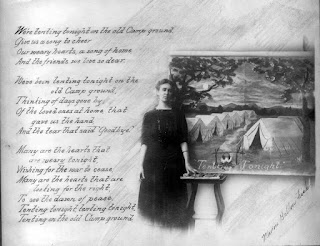 We're tenting tonight on the old Camp ground,
Give us a song to cheer
Our weary hearts, a song of home
And the friends we love so dear.
Have been tenting tonight on the
old Camp ground,
Thinking of days gone by,
Of the loved ones at home that
gave us the hand,
And the tear that said "Goodbye"
Many are the hearts that
are weary tonight,
Wishing for the war to cease,
Many are the hearts that are
looking for the right,
To see the dawn of peace.
Tenting tonight, tenting tonight,
Tenting on the old Camp ground.
"Tenting Tonight"